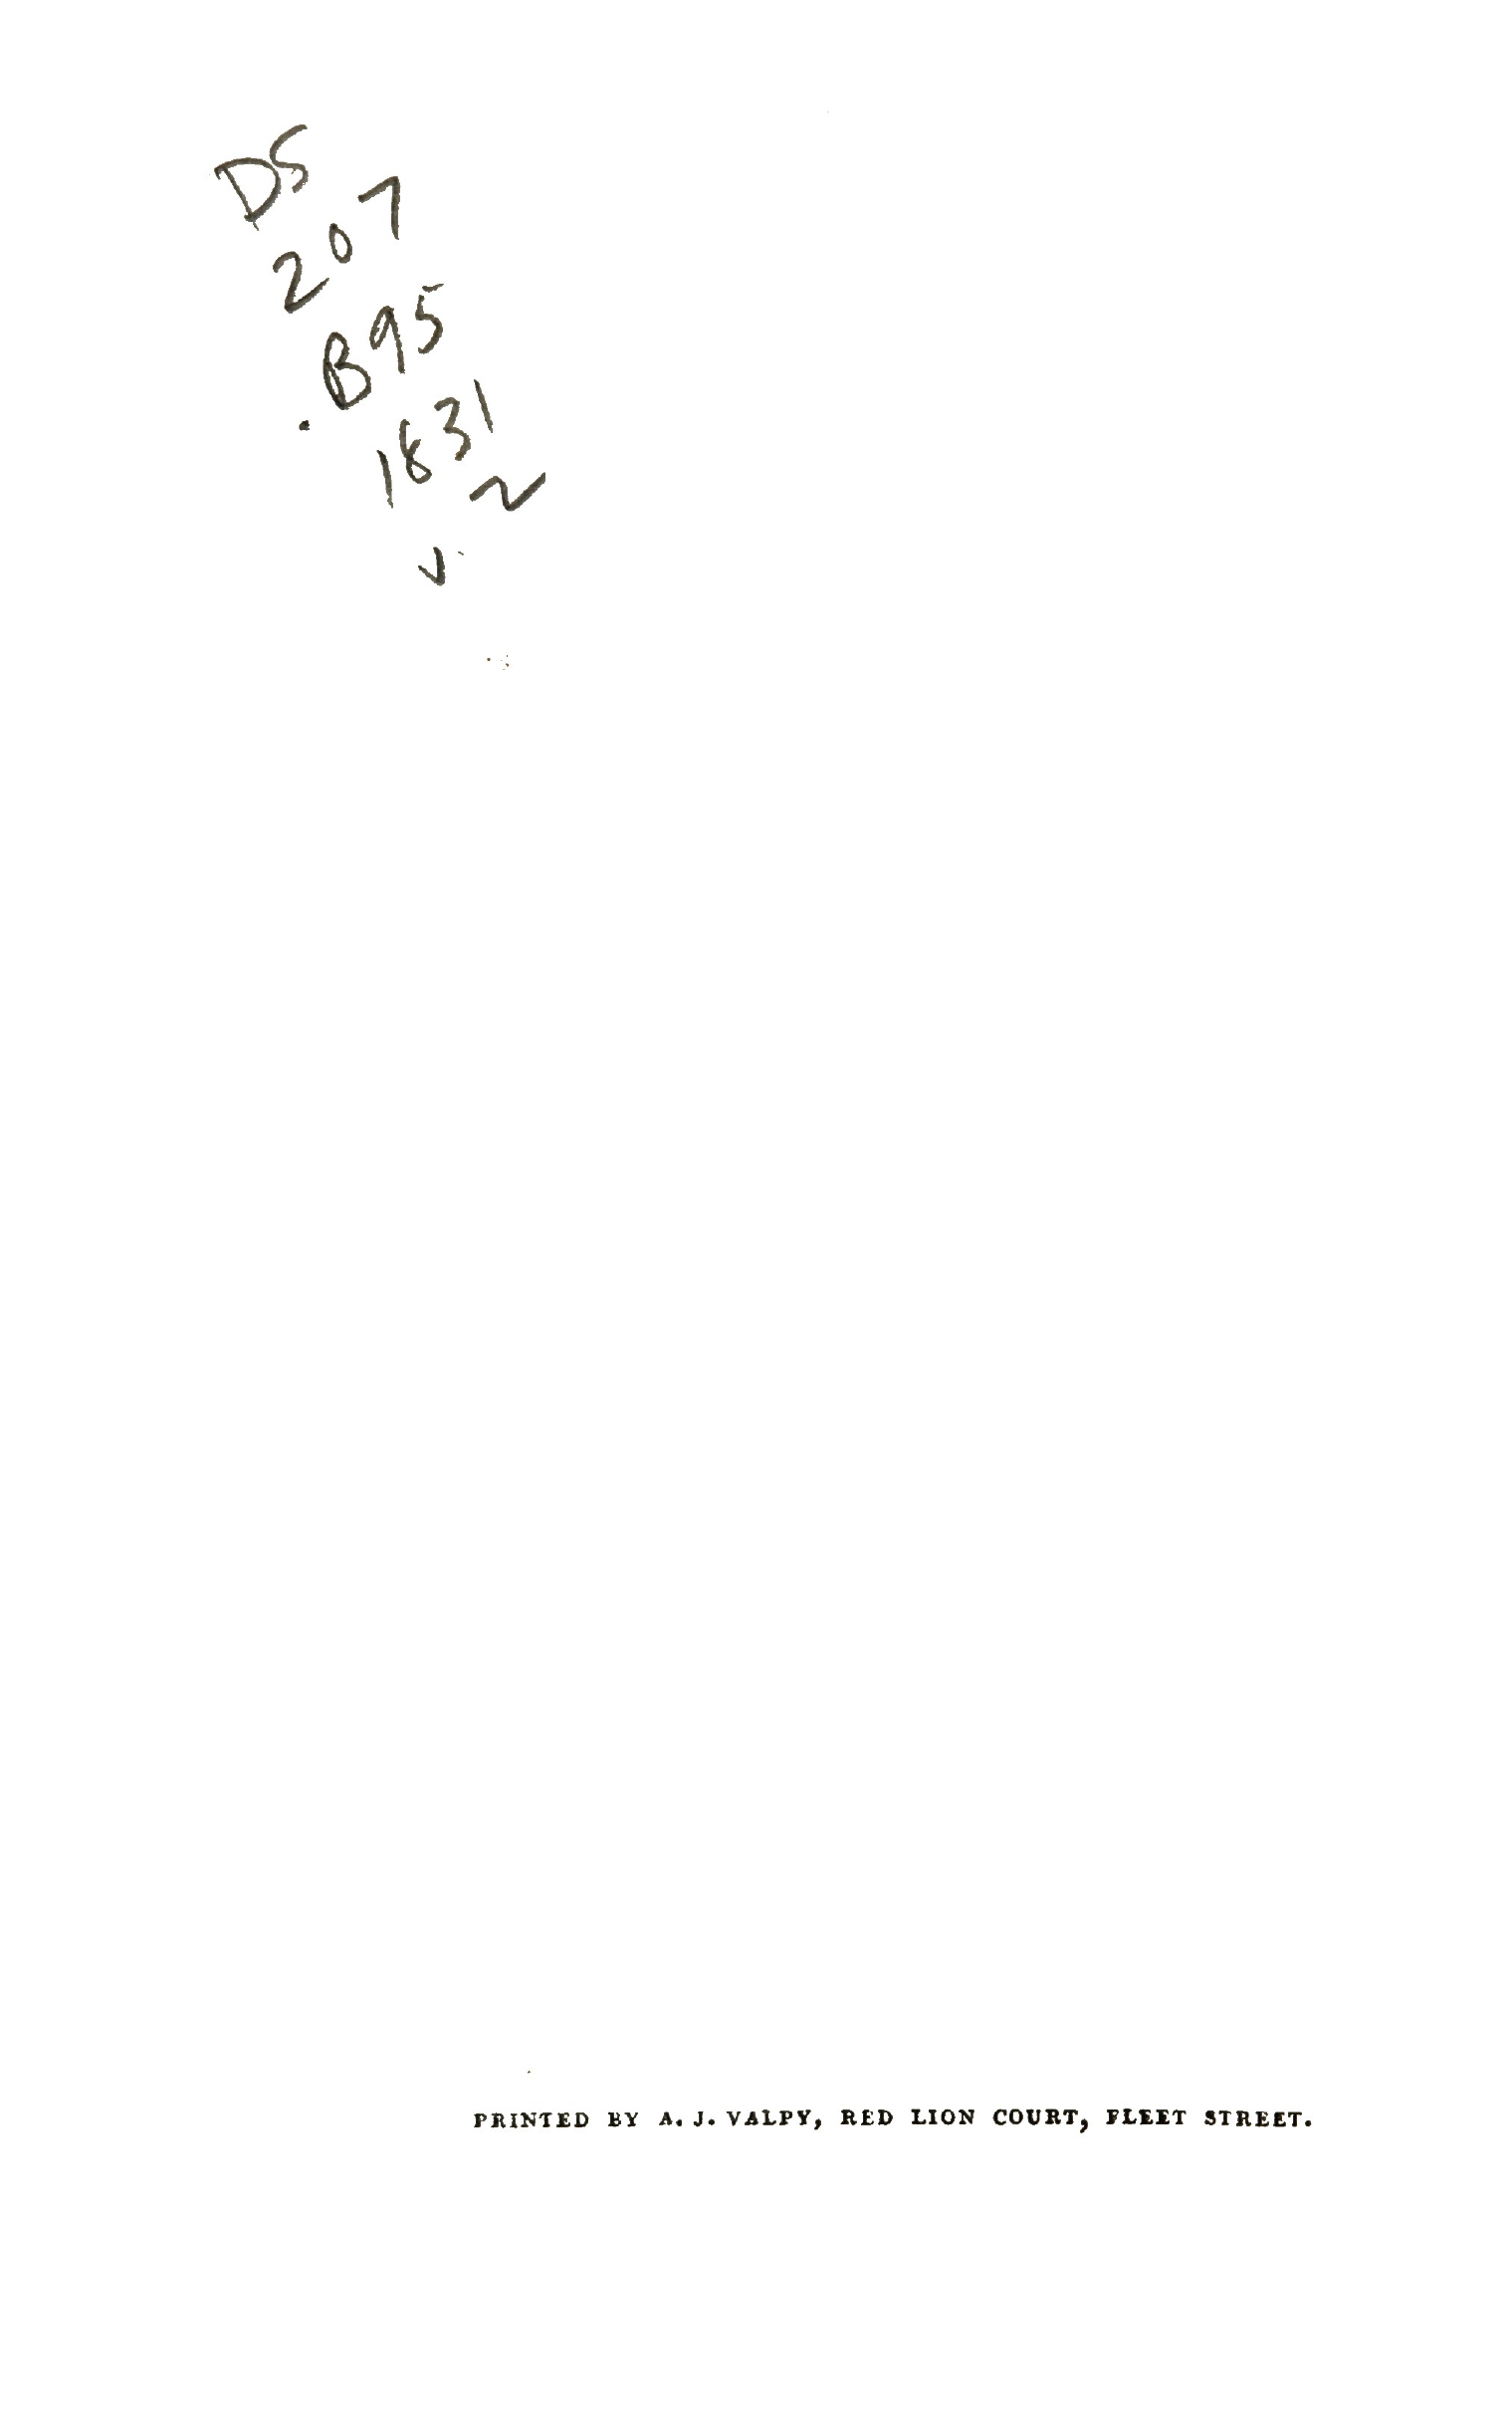 DS
207
.B95
1831
v. 2
PRINTED BY A. J. VALPY, RED LION COURT, FLEET STREET.